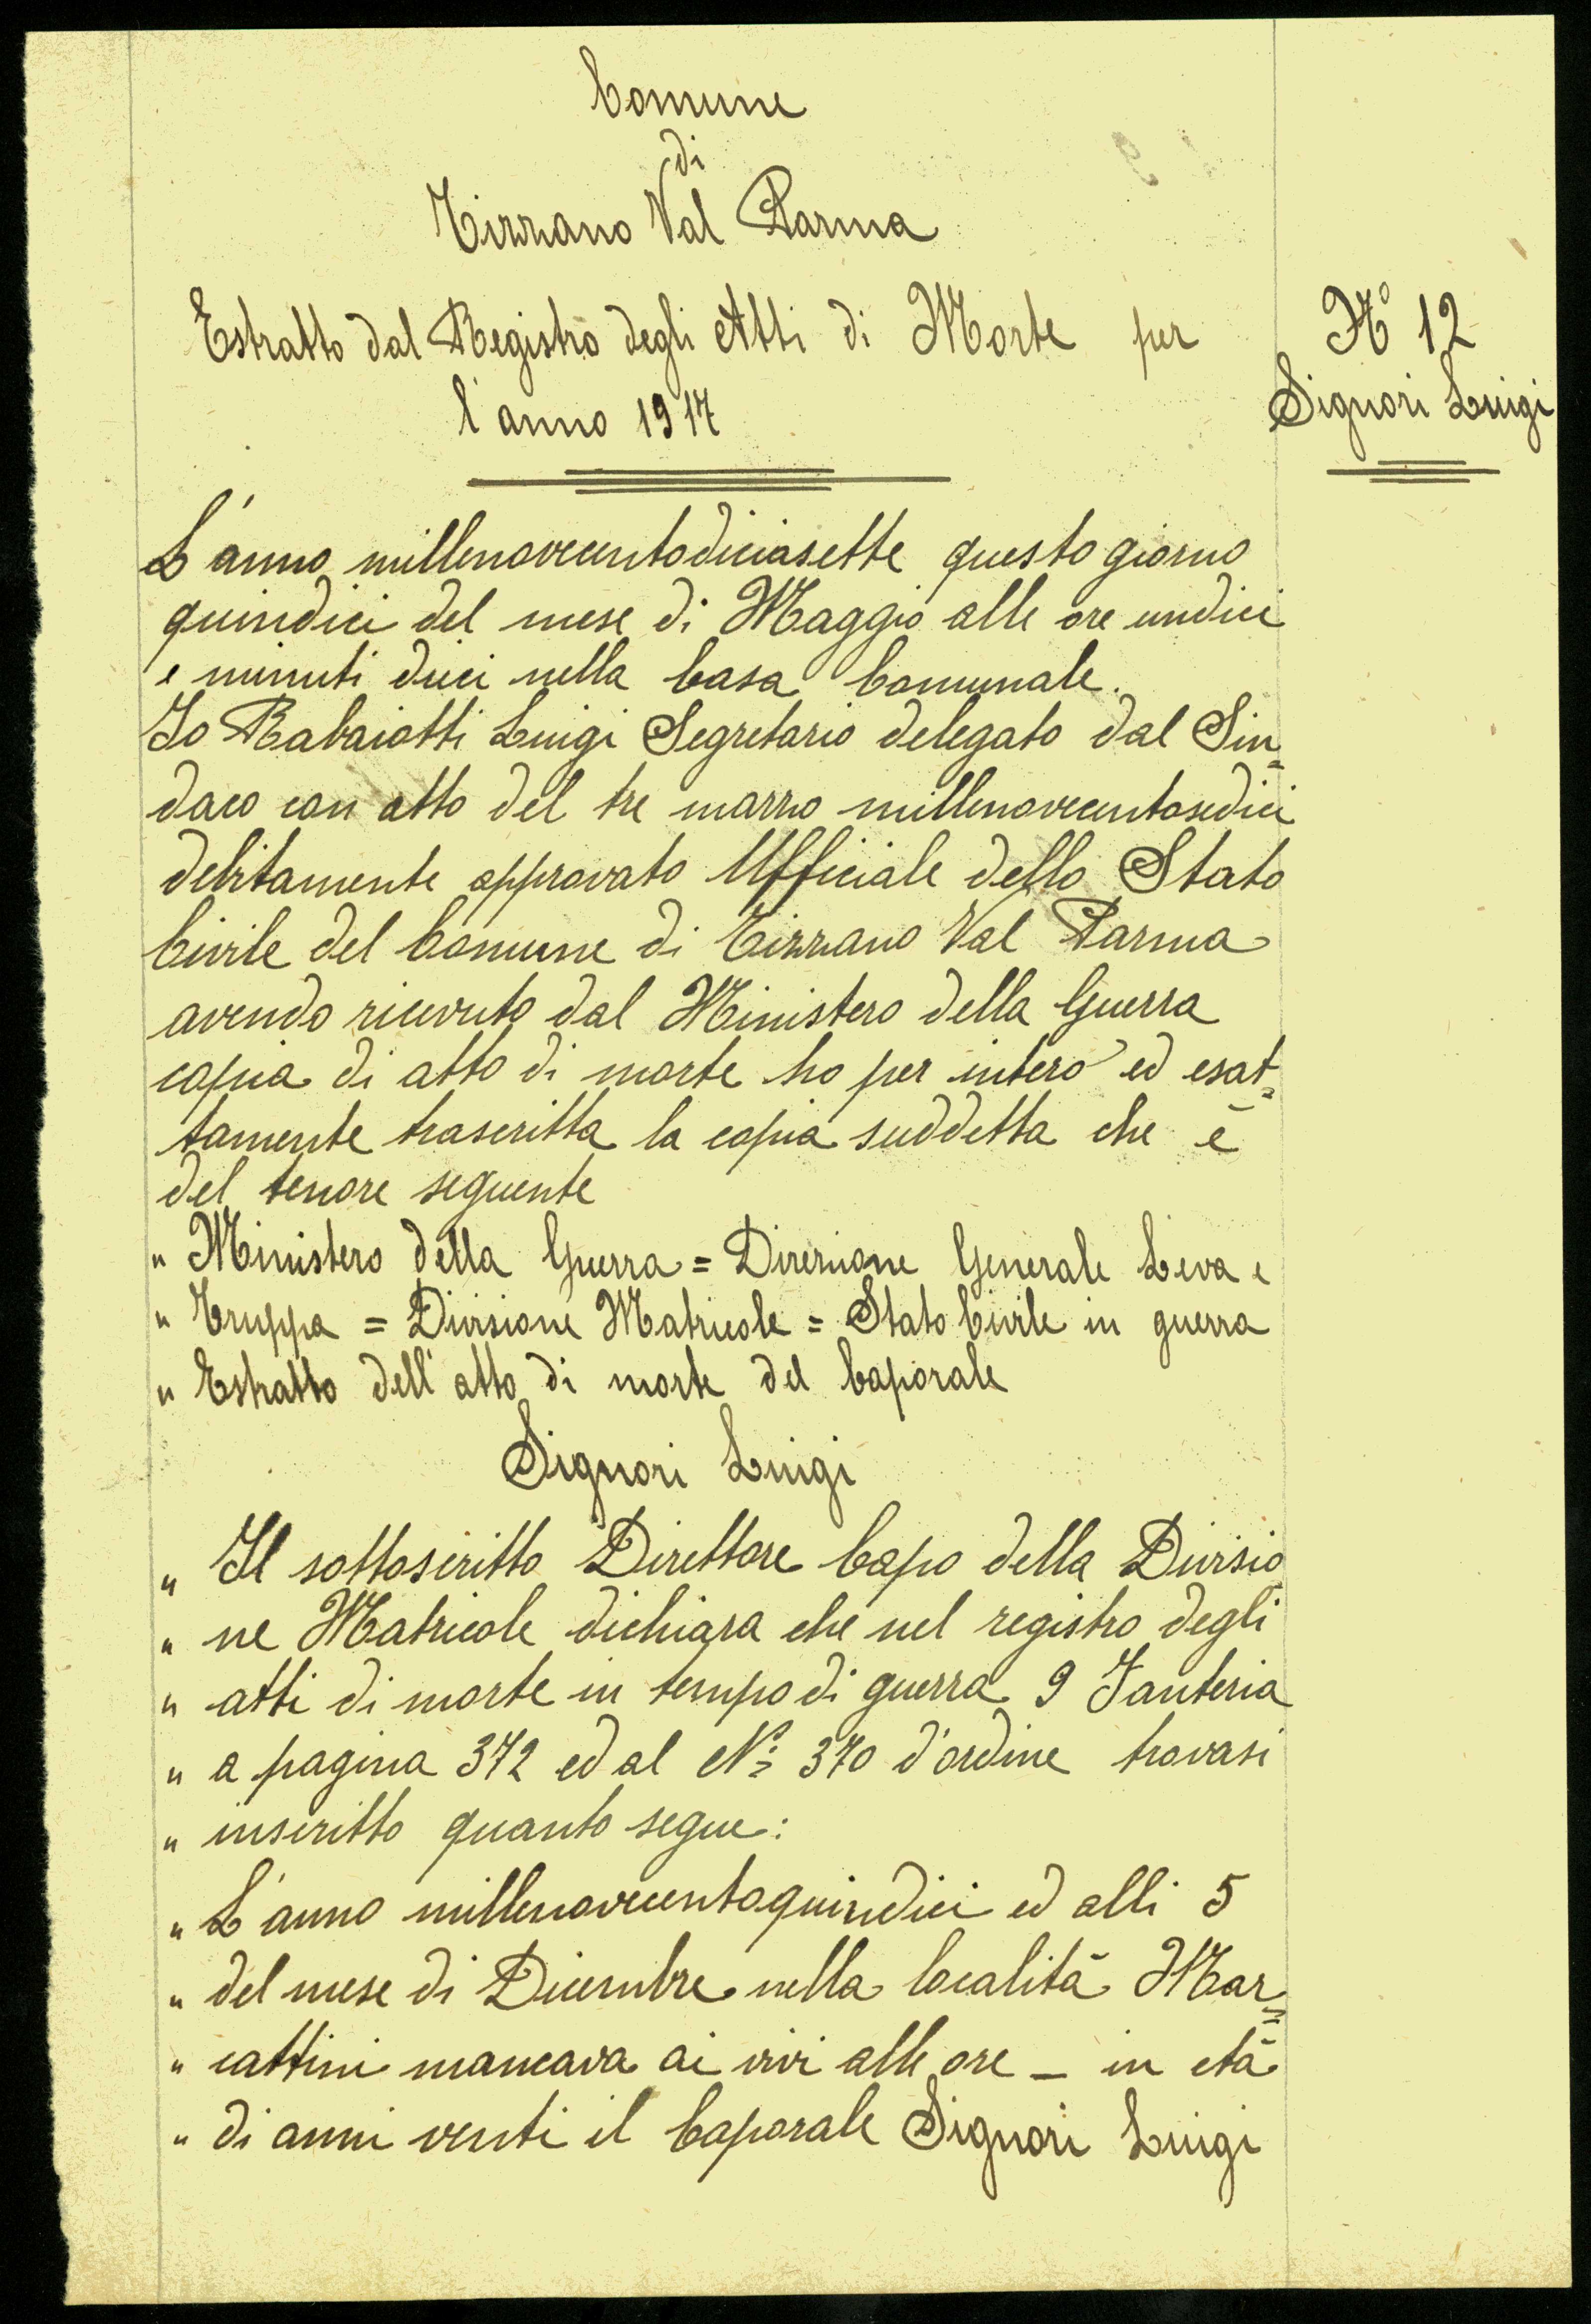 Comune
di
Tizzano Val Parma
Estratto dal Registro degli Atti di Morte per
l'anno 1917
N° 12
Signori Luigi
L'anno millenovecentodiciasette questo giorno
quindici del mese di Maggio alle ore undici
e minuti dieci nella Casa Comunale.
Io Rabaiotti Luigi Segretario delegato dal Sin=
daco con atto del tre marzo millenovecentosedici
debitamente approvato Ufficiale dello Stato
Civile del Comune di Tizzano Val Parma
avendo ricevuto dal Ministero della Guerra
copia di atto di morte ho per intero ed esat=
tamente trascritta la copia suddetta che è
del tenore seguente
" Ministero della Guerra = Direzione Generale Leva e
" Truppa = Divisione Matricole = Stato Civile in guerra
" Estratto dell'atto di morte del Caporale
Signori Luigi
" Il sottoscritto Direttore Capo della Divisio
" ne Matricole dichiara che nel registro degli
" atti di morte in tempo di guerra 9 Fanteria
" a pagina 372 ed al N° 370 d'ordine trovasi
" inscritto quanto segue:
" L'anno millenovecentoquindici ed alli 5
" del mese di Dicembre nella località Mar=
" cattini mancava ai vivi alle ore _ in età
" di anni venti il Caporale Signori Luigi